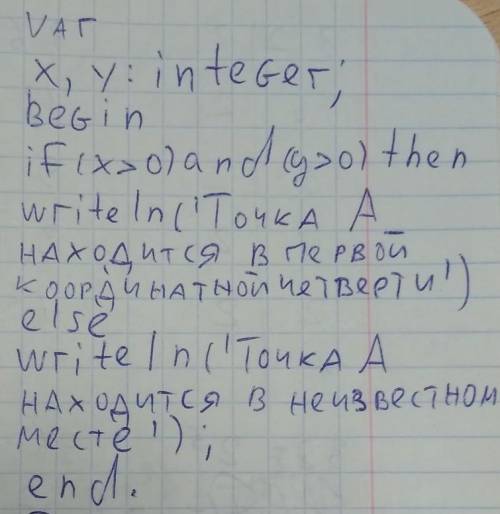 var
x, y: integer;
Begin
if(x>0)and(y>0)then
writeln('Точка А
находится в первой
координатной четверти')
else
writeln('Точка А
находится в неизвестном
месте');
end.